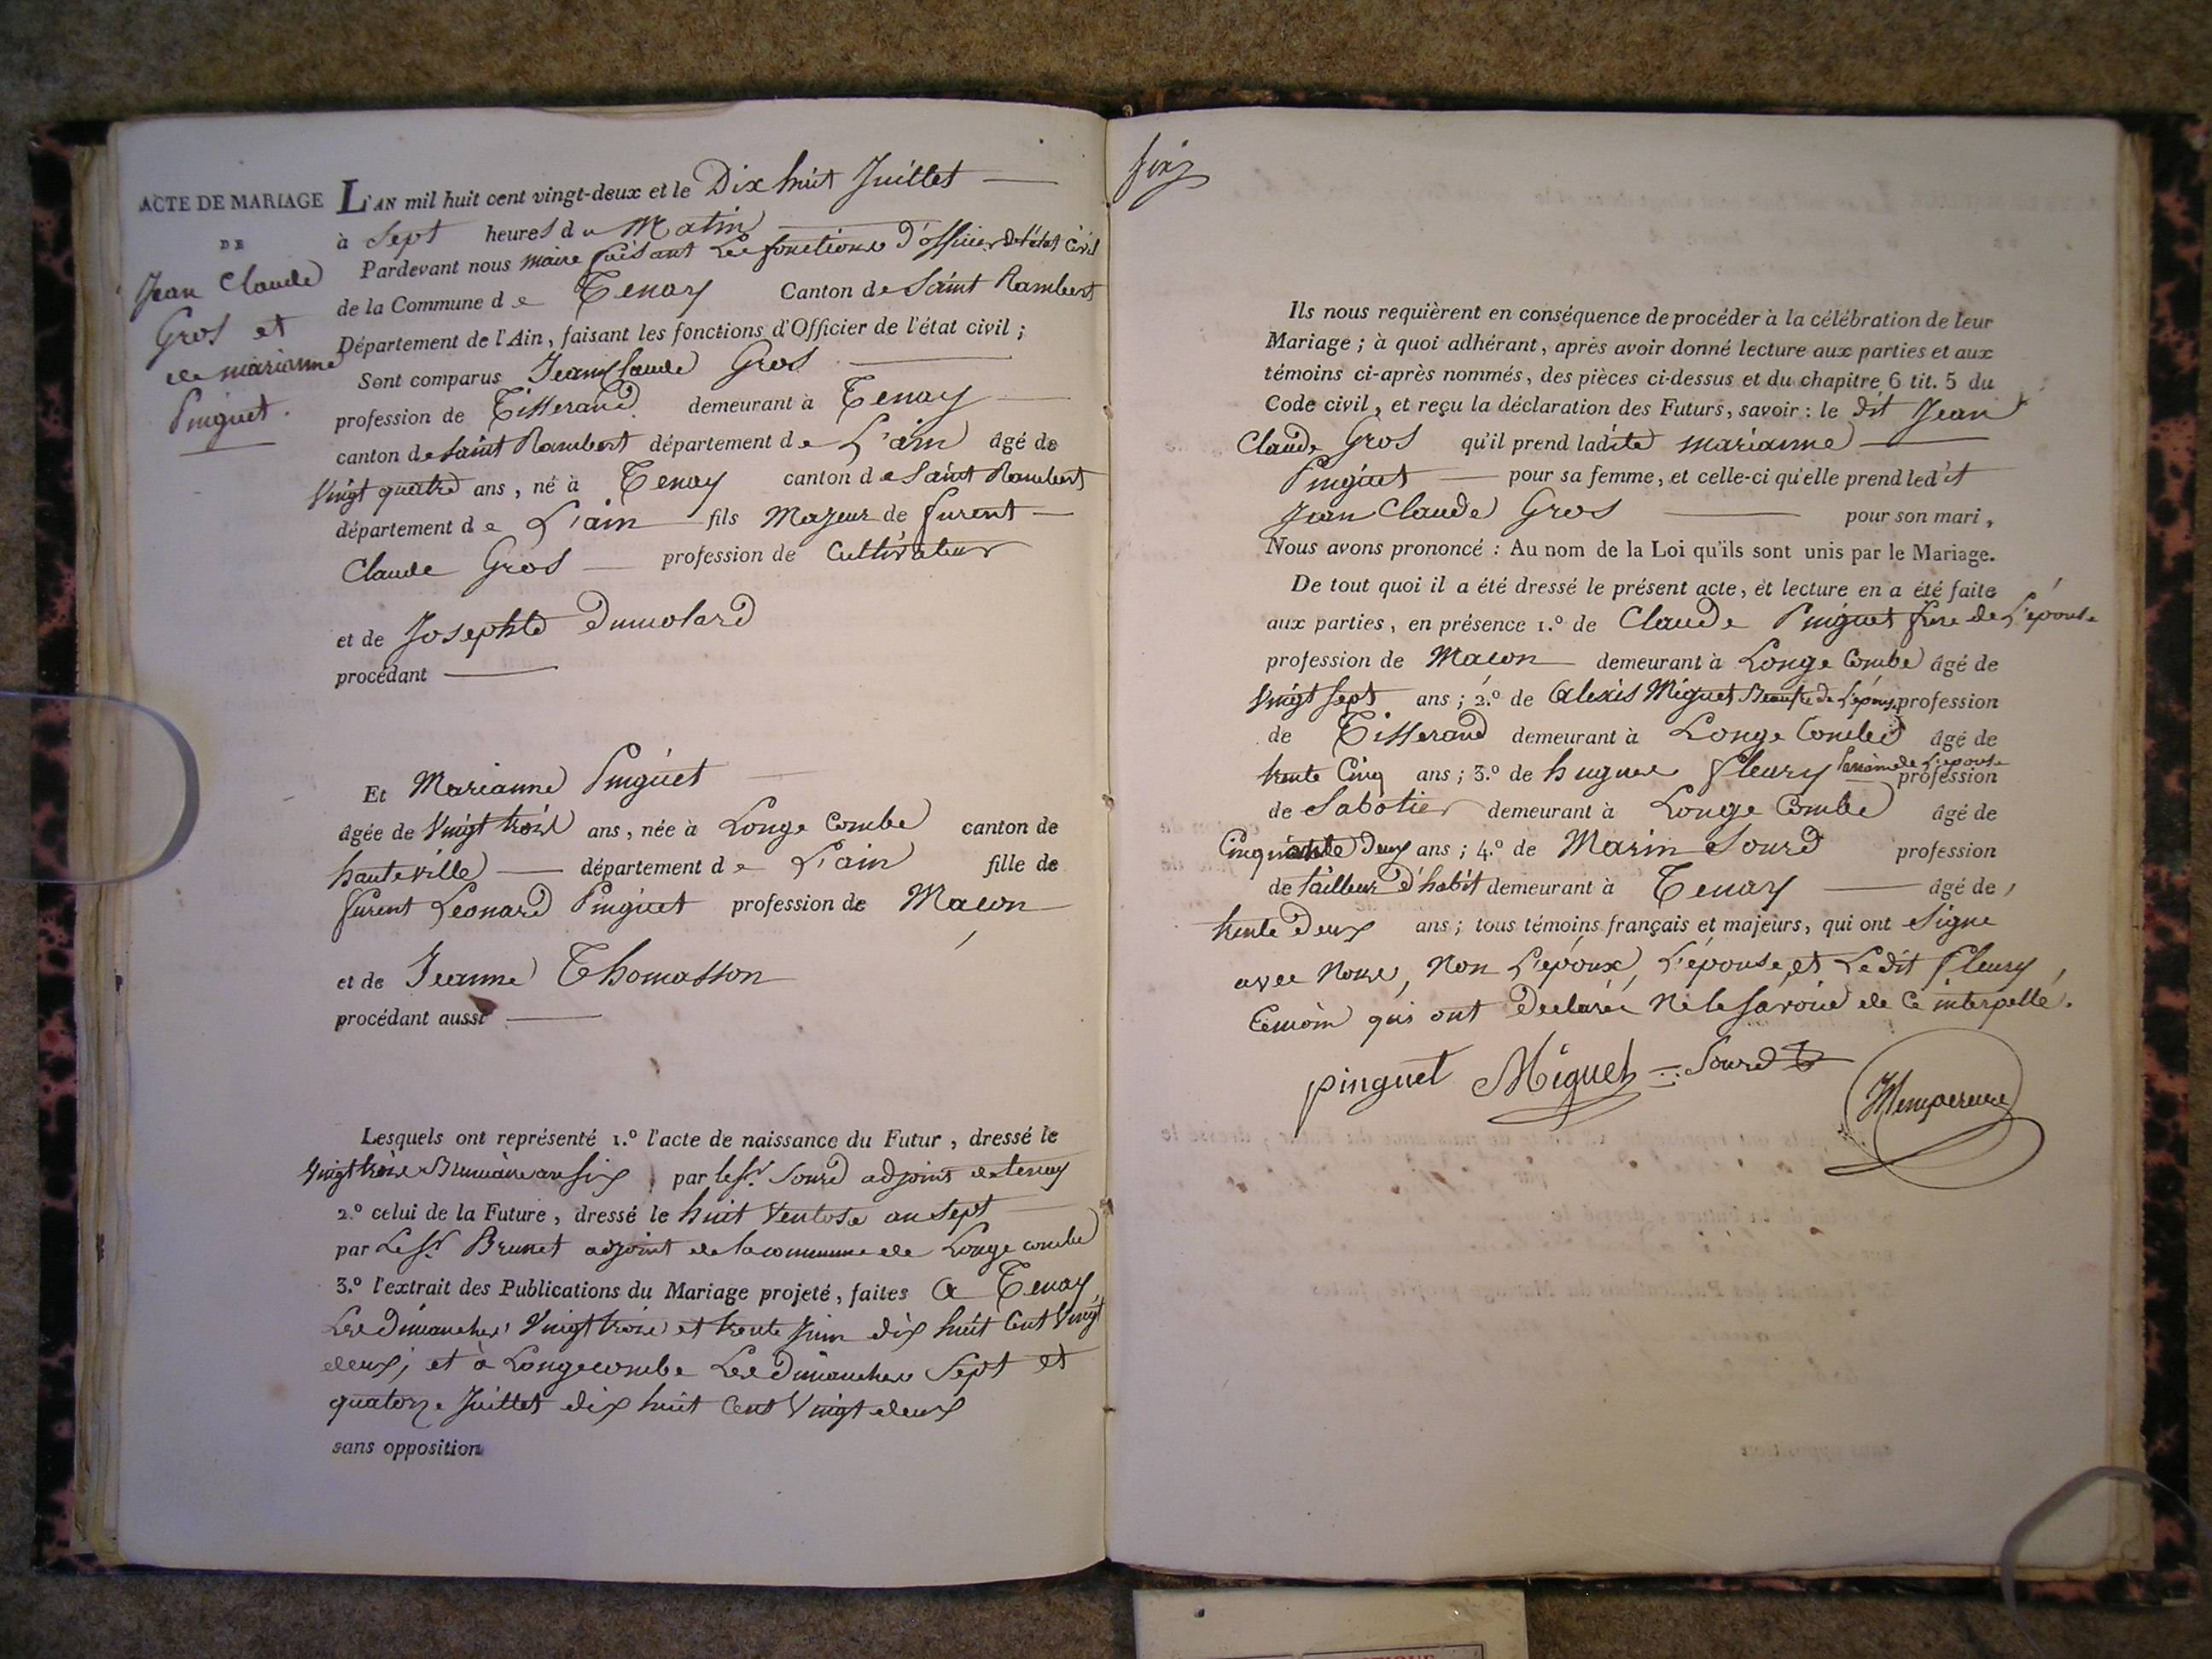 ACTE DE MARIAGE
DE
Jean Claude
Gros et
de marianne
Pinguet.
L'AN mil huit cent vingt-deux et le Dix huit Juillet
à Sept heures du Matin
Pardevant nous maire faisant Les fonctions d'officier de l'état Civil
de la Commune de Tenay Canton de Saint Rambert
Département de l'Ain, faisant les fonctions d'Officier de l'état civil ;
Sont comparus Jean Claude Gros
profession de Tisserand demeurant à Tenay
canton de Saint Rambert département de L'ain âgé de
Vingt quatre ans, né à Tenay canton de Saint Rambert
département de L'ain fils Majeur de furent
Claude Gros profession de Cultivateur
et de Josephte Dumolard
procédant
Et Marianne Pinguet
âgée de Vingt trois ans, née à Longe Combe canton de
hauteville département de L'ain fille de
furent Leonard Pinguet profession de Maçon
et de Jeanne Thomasson
procédant aussi
Lesquels ont représenté 1.º l'acte de naissance du Futur, dressé le
Vingt trois Brumaire an six par le Sr. Sourd adjoint de tenay
2.º celui de la Future, dressé le huit Ventose an Sept
par Le Sr Brunet adjoint de la commune de Longe combe
3.º l'extrait des Publications du Mariage projeté, faites a Tenay
Les Dimanches Vingt trois et trente Juin dix huit Cent Vingt
deux, et à Longecombe Les Dimanches Sept et
quatorze Juillet dix huit Cent Vingt deux
sans opposition
Ils nous requièrent en conséquence de procéder à la célébration de leur
Mariage ; à quoi adhérant, après avoir donné lecture aux parties et aux
témoins ci-après nommés, des pièces ci-dessus et du chapitre 6 tit. 5 du
Code civil, et reçu la déclaration des Futurs, savoir : le dit Jean
Claude Gros qu'il prend ladite marianne
Pinguet pour sa femme, et celle-ci qu'elle prend ledit
Jean Claude Gros pour son mari,
Nous avons prononcé : Au nom de la Loi qu'ils sont unis par le Mariage.
De tout quoi il a été dressé le présent acte, et lecture en a été faite
aux parties, en présence 1.º de Claude Pinguet frere de L'épouse
profession de Maçon demeurant à Longe Combe âgé de
Vingt Sept ans ; 2.º de Alexis Miguet Beaufre de L'épouse profession
de Tisserand demeurant à Longe Combe âgé de
trente Cinq ans ; 3.º de hugues fleury Parrain de L'epouse profession
de Sabotier demeurant à Longe Combe âgé de
Cinquante Deux ans ; 4.º de Marin Sourd profession
de tailleur d'habit demeurant à Tenay âgé de
trente Deux ans ; tous témoins français et majeurs, qui ont Signe
avec Nous, Non L'époux, L'épouse, et Le dit fleury,
temoin qui ont Declaré Ne le Savoir de Ce interpelle.
pinguet Miguet Sourd